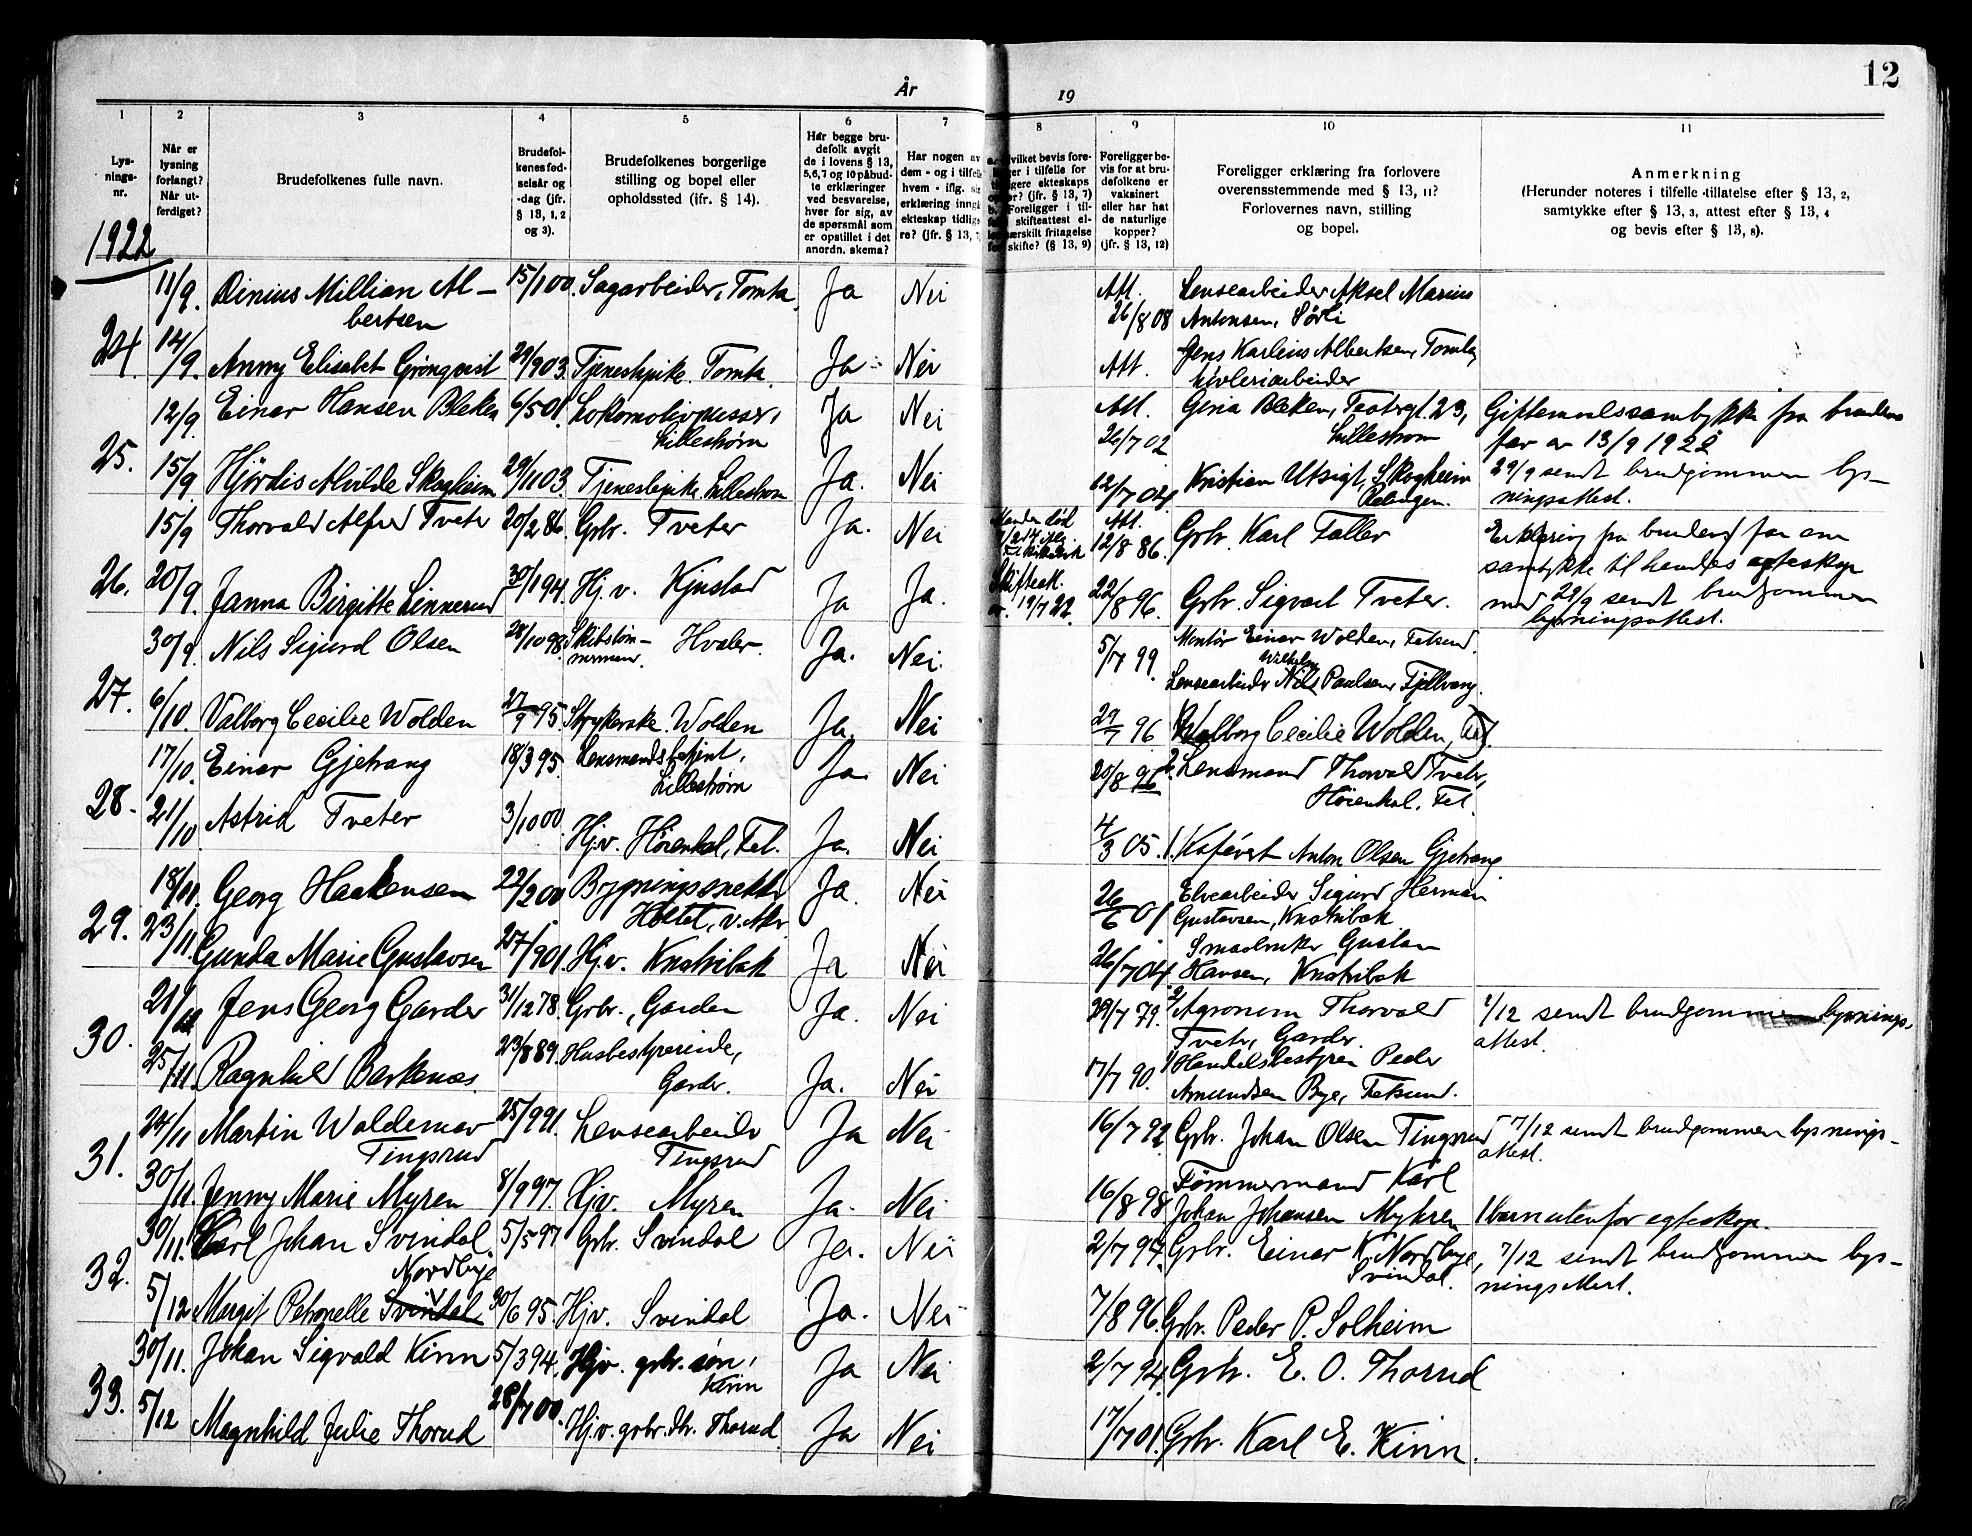 12
År
19
1
2
3
4
5
6
7
8
9
10
11
Lys-
nings-
nr.
Når er
lysning
forlangt?
Når ut-
ferdiget?
Brudefolkenes fulle navn.
Brudefol-
kenes fød-
selsår og
-dag (jfr.
§ 13, 1, 2
og 3).
Brudefolkenes borgerlige
stilling og bopel eller
opholdssted (ifr. § 14).
Har begge bru-
defolk avgit
de i lovens § 13,
5,6,7 og 10 påbud-
te erklæringer
ved besvarelse,
hver for sig, av
de spørsmål som
er opstillet i det
anordn. skema?
Har nogen av
dem - og i tilfelle
hvem - iflg. sin
erklæring inngå
ekteskap tidlige
re? (jfr. § 13, 7
vilket bevis fore-
ger i tilfelle for
ligere ekteskaps
er? (jfr. § 13, 7)
Foreligger i til-
skifteattest el-
særskilt fritagelse
skifte? (§ 13, 9)
Foreligger be-
vis for at bru-
defolkene er
vaksinert
eller har hat
de naturlige
kopper?
(jfr. § 13, 12)
Foreligger erklæring fra forlovere
overensstemmende med § 13, 11?
Forlovernes navn, stilling
og bopel.
Anmerkning
(Herunder noteres i tilfelle tillatelse efter § 13, 2,
samtykke efter § 13, 3, attest efter § 13, 4
og bevis efter § 13, 8).
1922
11/9. Dinius Millian Al- 15/1 00. Sagarbeider, Tomta Ja Nei Att. Lensearbeider Aksel Marius
bertsen 26/8 08 Antonsen, Sørli
24. 14/9. Anny Elisabet Grönqvist 29/9 03. Tjenestepike. Tomta. Ja Nei Att. Jens Karlius Albertsen, Tomta,
høvleriarbeider
12/9. Einar Hansen Bleken 6/5 01. Lokomotivpusser, Ja Nei Att. Gina Bleken, Teatergt. 23, Giftemaalssamtykke fra brudens
Lillestrøm 26/7 02 Lillestrøm far av 13/9 1922
25. 15/9. Hjördis Alvilde Skogheim 29/11 03. Tjenestepike. Lillestrøm Ja. Nei 12/7 04. Kristian Utsigt, Skogheim 29/9 sendt brudgommen lys-
ningsattest.
15/9 Thorvald Alfred Tveter 20/2 86. Grbr. Tveter Ja. Nei Att. 12/8 86. Grbr. Karl Faller Erklæring fra brudens far om
26. 20/9. Janna Birgitte Linnerud 30/1 94. Hj. v. Kjustad Ja Ja. Skifteat. av. 19/7 22. 22/8 96. Grbr. Sigvart Tveter. samtykke til hendes egteskap
med 29/9 sendt brudgommen
lysningsattest.
30/9. Nils Sigurd Olsen 28/10 98. Skibstøm- Hvaler. Ja. Nei. 5/7 99. Montør Einar Wolden, Fetsund.
mermand. Wilhelm
Lensearbeider Nils Paulsen, Fjellvang.
27. 6/10. Valborg Cecilie Wolden 27/9 95. Strykerske. Wolden Ja. Nei 29/7 96 Walborg Cecilie Wolden, Fet.
17/10. Einar Gjetrang 18/3 95. Lensmandsbetjent, Ja Nei 20/8 96. 2. Lensmand Thorvald Tveter,
Lillestrøm Hörenkol. Fet.
28. 21/10. Astrid Tveter 3/10 00. Hj.v. Hörenkol, Fet. Ja. Nei 4/3 05. 1. Kafévert Anton Olsen Gjetrang
18/11. Georg Haakensen 22/2 00 Bygningssnekker Ja. Nei 26/6 01 Elvearbeider Sigurd Herman
Holtet, v. Aker Gustavsen, Knatribak
29. 23/11. Gunda Marie Gustavsen 27/9 01. Hj.v. Knatribak Ja Nei 26/7 04. Smaabruker Gustav
Hansen, Knatribak
21/11 Jens Georg Garder 31/12 78. Grbr., Garder Ja. Nei 29/7 79. 2/ Agronom Thorvald 1/12 sendt brudgommen lysnings-
Tveter, Garder. attest.
30. 25/11. Ragnhild Barkenæs 23/8 89. Husbestyrerinde, Ja. Nei 17/7 90. 1/ Handelsbestyrer Peder
Garder. Amundsen Bye, Fetsund.
24/11 Martin Waldemar 25/9 91. Lensearbeider Ja Nei 16/7 92. Grbr. Johan Olsen Tingsrud 7/12 sendt brudgommen lysnings-
Tingsrud Tingsrud attest.
31. 30/11. Jenny Marie Myren 8/9 97. Hjv. Myren Ja. Nei 16/8 98 Tömmermand Karl
Johan Johansen Myhren 1 barn utenfor egteskap.
30/11. Carl Johan Svindal 5/5 97 Grbr. Svindal Ja. Nei 2/7 97. Grbr. Einar K. Nordbye, 7/12 sendt brudgommen lys-
Nordbye Svindal. ningsattest.
32. 5/12 Margit Petronelle Svindal 30/6 95. Hjv. Svindal Ja. Nei 7/8 96. Grbr. Peder P. Solheim
30/11. Johan Sigvald Kinn 5/3 94. Hjv. grbr. søn, Ja Nei 2/7 94. Grbr. E. O. Thorud
Kinn
33. 5/12 Magnhild Julie Thorud 28/7 00. Hj.v. grbr. dtr. Thorud. Ja Nei 17/7 01. Grbr. Karl E. Kinn.